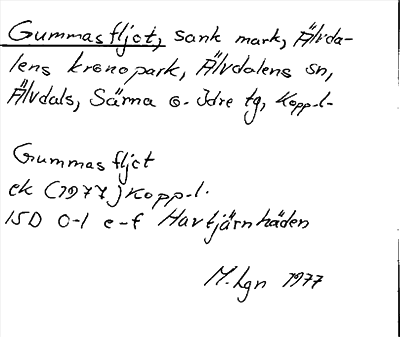 Gummasfljot, sank mark, Älvda-
lens kronopark, Älvdalens sn,
Älvdals, Särna o. Idre tg, Kopp. l.
Gummasfljot
ek (1977) Kopp. l.
15D 0-1 e-f Havtjärnhäden
M. Lgn 1977